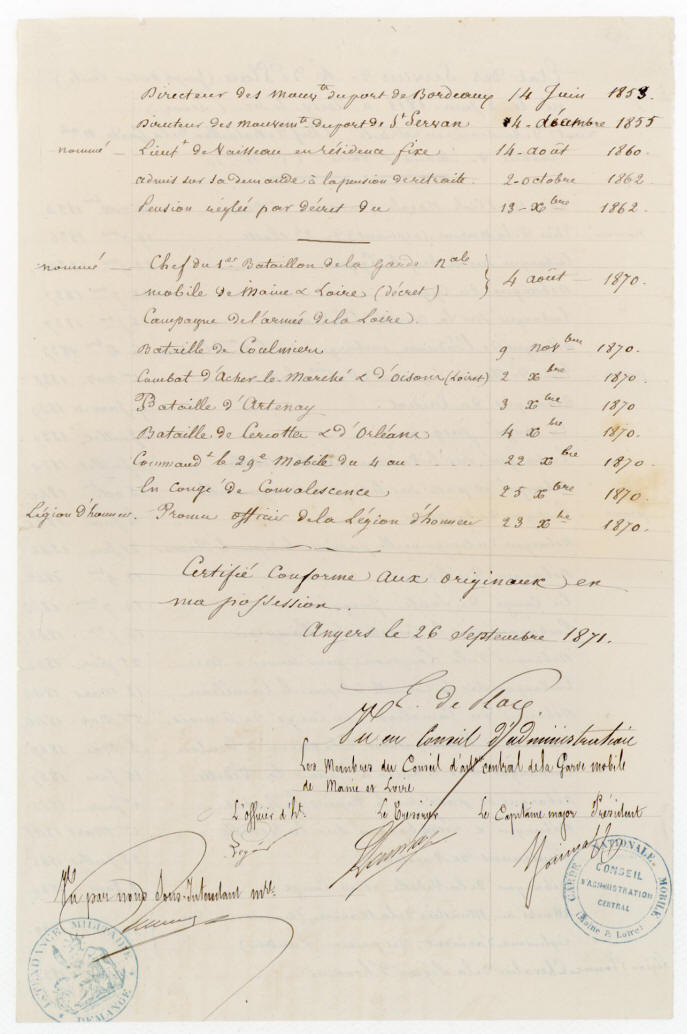 Directeur des mouv.ts du port de Bordeaux 14 Juin 1853.
Directeur des mouvem.ts du port de St Servan 14 décembre 1855
nommé — Lieut.t de Vaisseau en résidence fixe 14 août 1860.
admis sur sa demande à la pension de retraite. 2 octobre 1862.
Pension réglée par décret du 13 Xbre 1862.
nommé — Chef du 1er Bataillon de la Garde Nale
mobile de Maine & Loire (décret) } 4 août 1870.
Campagne de l'armée de la Loire.
Bataille de Coulmiers 9 novbre 1870.
Combat d'Acher le Marché & d'Oison (Loiret) 2 Xbre 1870.
Bataille d'Artenay 3 Xbre 1870
Bataille de Cercotte & d'Orléans 4 Xbre 1870.
Command.t le 29e Mobile du 4 au .... 22 Xbre 1870.
En congé de Convalescence 25 Xbre 1870.
Légion d'honneur. Promu officier de la Légion d'honneur 23 Xbre 1870.
Certifié Conforme aux originaux en
ma possession.
Angers le 26 Septembre 1871.
E. de Place
Vu en Conseil d'administration
Les Membres du Conseil d'adon central de la Garde mobile
de Maine et Loire
L'Officier d'ht. Le Trésorier Le Capitaine major Président
Vu par nous Sous-Intendant mre
GARDE NATIONALE MOBILE
CONSEIL
D'ADMINISTRATION
CENTRAL
(Maine & Loire)
INTENDANCE MILITAIRE